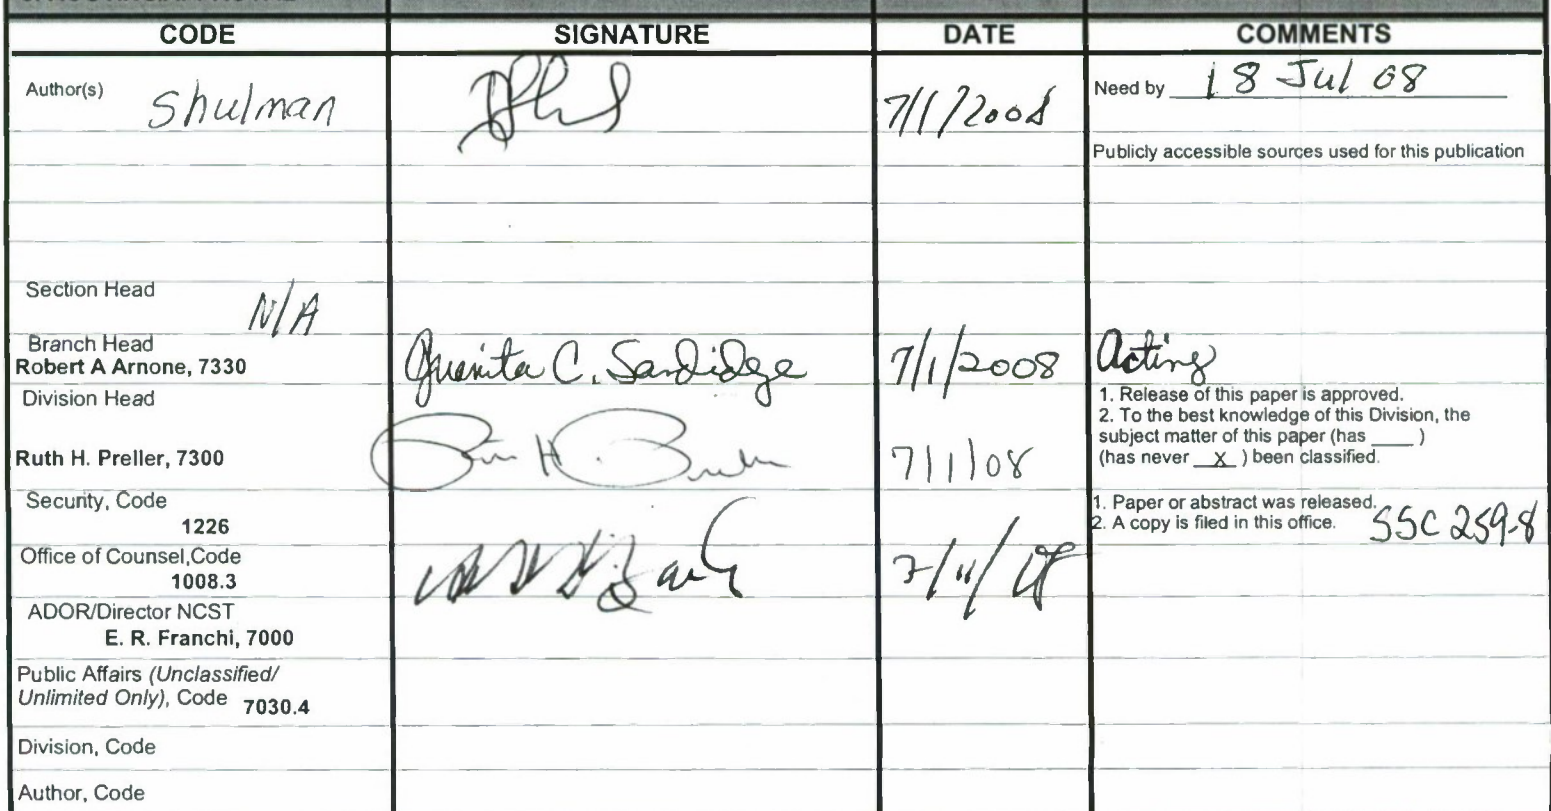 CODE SIGNATURE DATE COMMENTS
Author(s) Shulman 7/1/2008 Need by 18 Jul 08
Publicly accessible sources used for this publication
Section Head
N/A
Branch Head
Robert A Arnone, 7330 Juanita C. Sandidge 7/1/2008 Acting
Division Head
1. Release of this paper is approved.
2. To the best knowledge of this Division, the
subject matter of this paper (has ____ )
(has never X ) been classified.
Ruth H. Preller, 7300 7/1/08
Security, Code
1226
1. Paper or abstract was released.
2. A copy is filed in this office. SSC 259-8
Office of Counsel,Code
1008.3 7/11/08
ADOR/Director NCST
E. R. Franchi, 7000
Public Affairs (Unclassified/
Unlimited Only), Code 7030.4
Division, Code
Author, Code